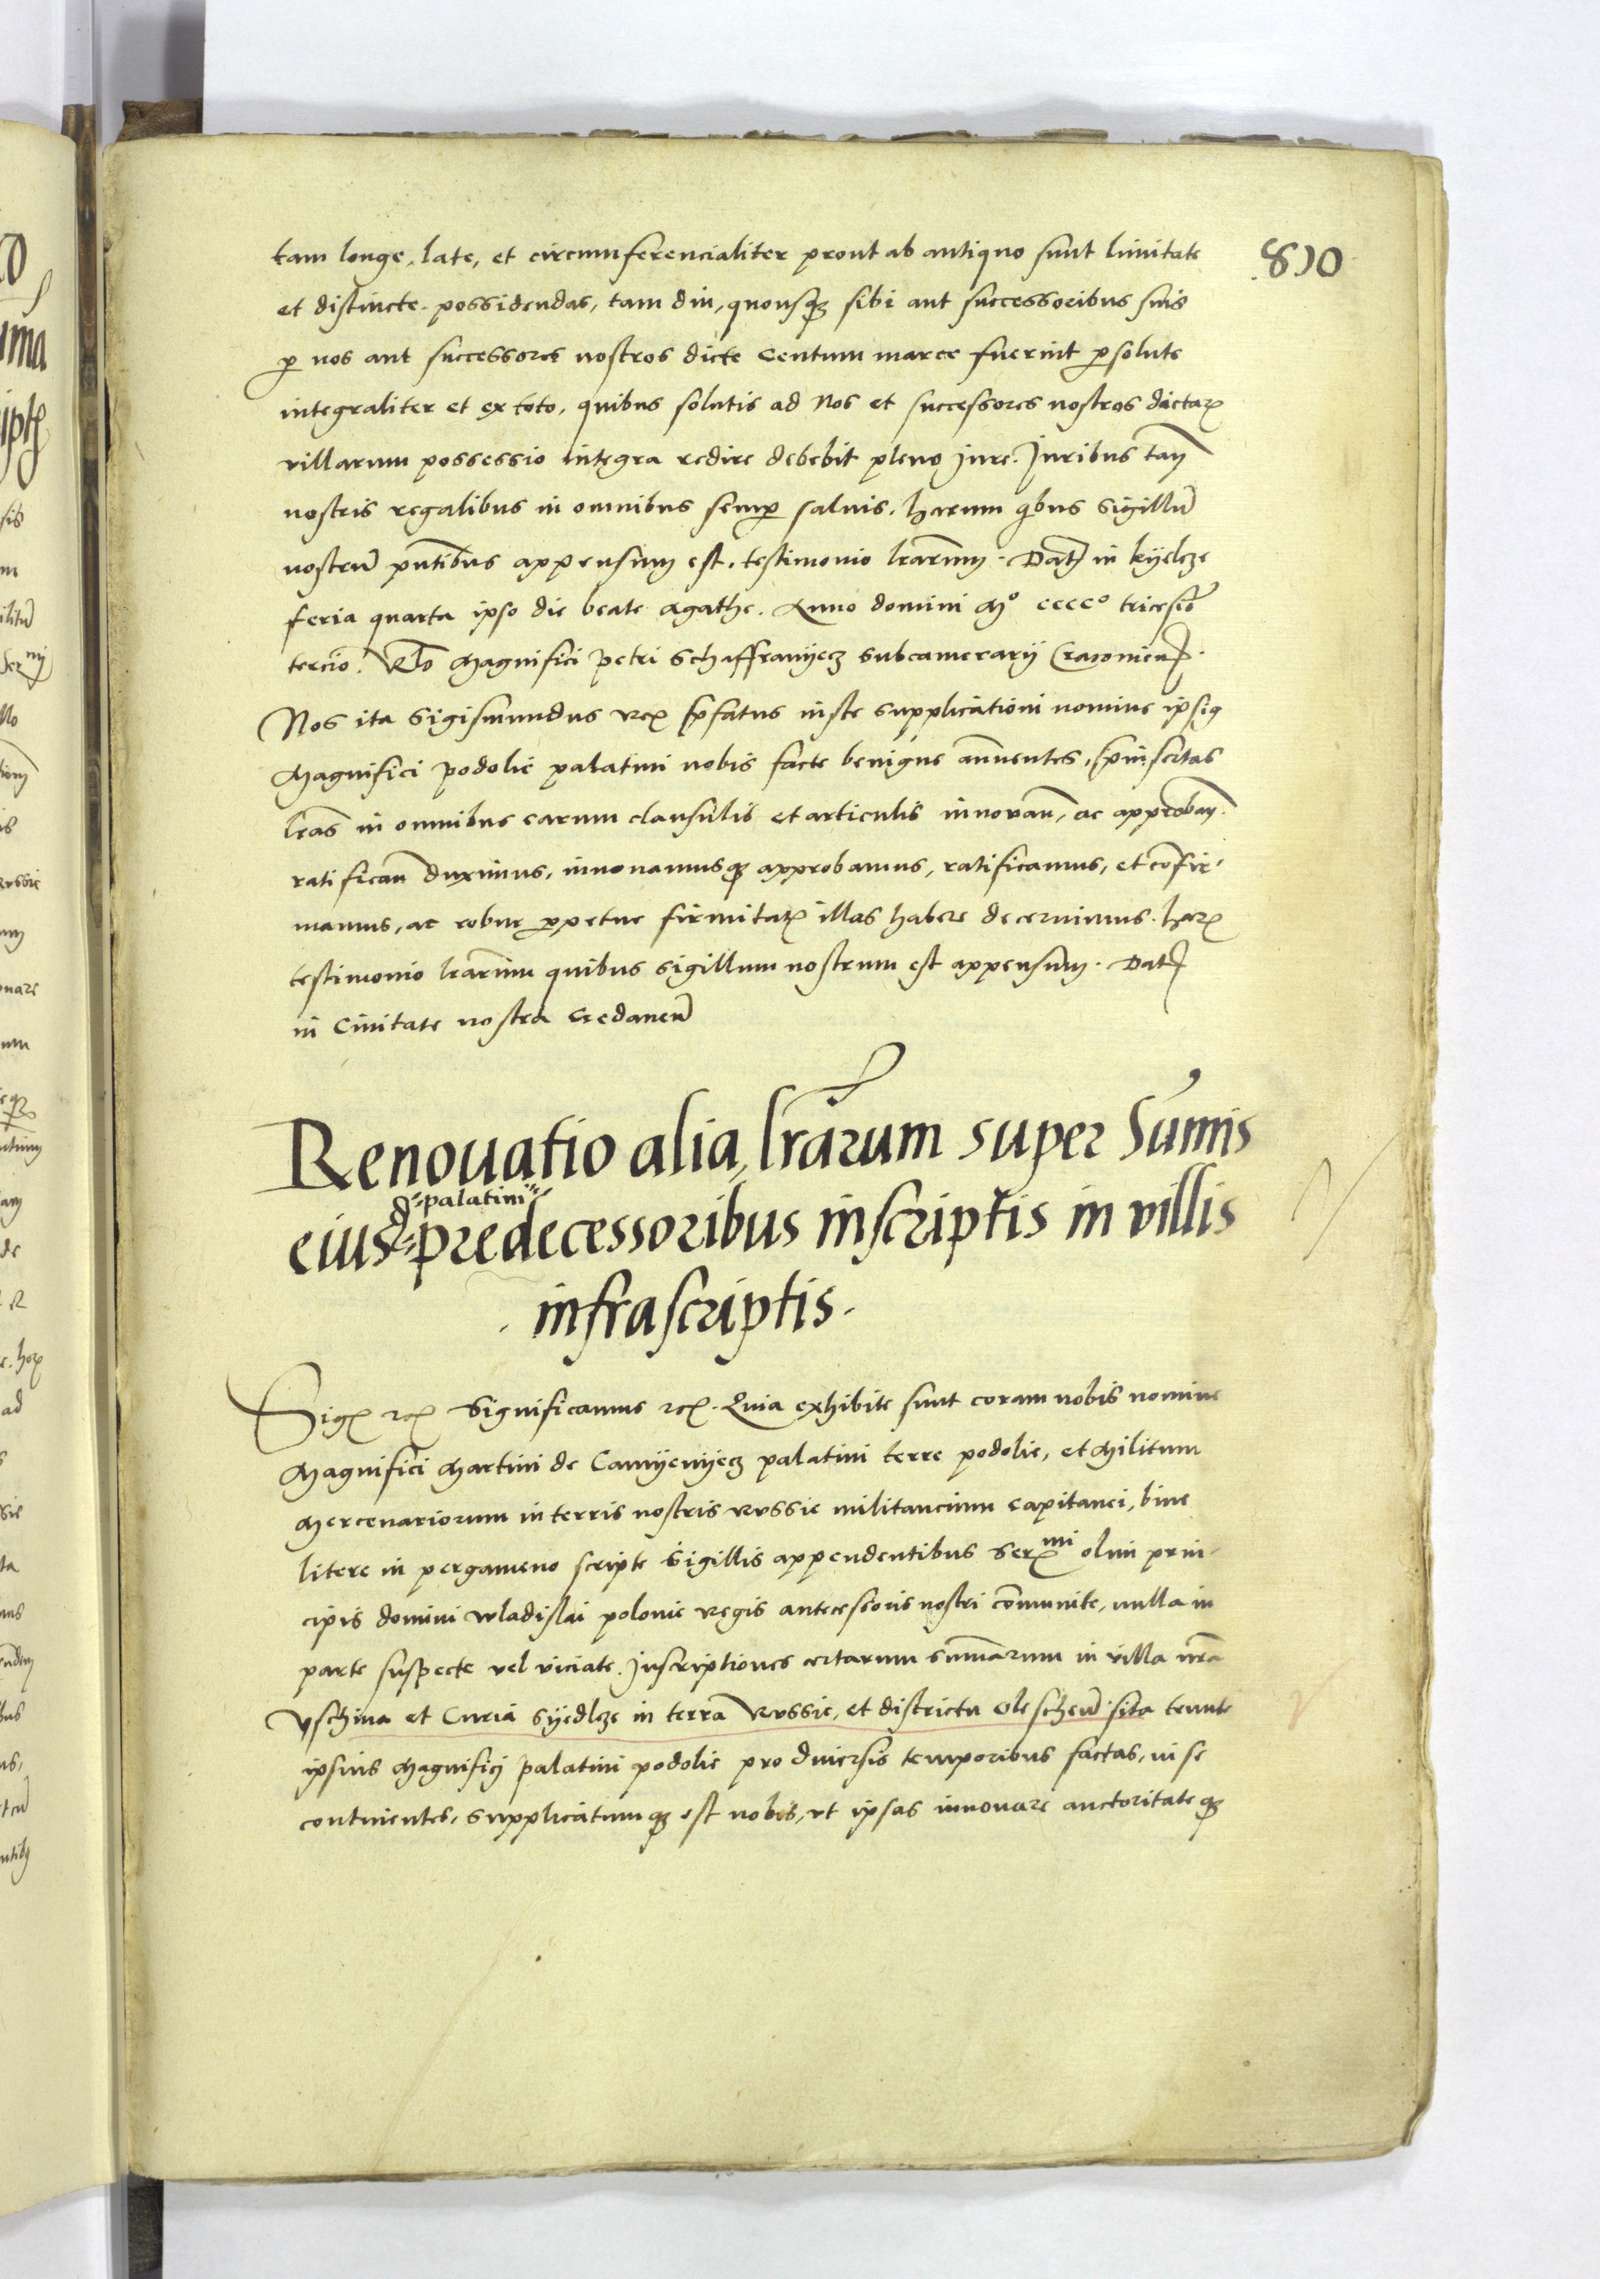 810
tam longe, late, et circumferencialiter prout ab antiquo sunt limitate
et distincte possidendas, tam diu, quousqꝫ sibi aut successoribus suis
ꝑ nos aut successores nostros dicte Centum marce fuerint ꝑsolute
integraliter et ex toto, quibus solutis ad Nos et successores nostros dictaꝝ
villarum possessio integra redire debebit pleno Jure. Juribus tam̄
nostris regalibus in omnibus semꝑ saluis. harum qͥbus Sigillū
nostrū pn̄tibus appensum est, testimonio lr̄arum. Dat̄ in kyelcze
feria quarta ipso die beate Agathe. Anno domini Mº ccccº tricesiō
tercio. Rlō Magnifici petri Schaffranyecz Subcamerarij Cracouien̄.
Nos ita Sigismundus Rex p̄fatus iuste supplicationi nomine ipsiꝯ
Magnifici podolie palatini nobis facte benigne annuentes, p̄insertas
lr̄as in omnibus earum clausulis et articulis innouan̄, ac approban̄
ratifican̄ duximus, innouamusqꝫ approbamus, ratificamus, et cōfir-
mamus, ac robur ꝑpetue firmitatꝭ illas habere decernimus. haꝝ
testimonio lr̄arum quibus Sigillum nostrum est appensum. Dat̄
in Ciuitate nostra Gedanen̄
Renouatio alia, lr̄arum super Sum̄is
palatini
eiusd predecessoribus inscriptis in villis
infrascriptis.
Sigꝭ rcꝭ Significamus rcꝭ. Quia exhibite sunt coram nobis nomine
Magnifici Martini de Camyenyecz palatini terre podolie, et Militum
Mercenariorum in terris nostris Russie militancium Capitanei, bine
litere in pergameno scripte Sigillis appendentibus Serᵐⁱ olim prin-
cipis domini wladislai polonie Regis antecessoris nostri cōmunite, nulla in
parte suspecte vel viciate. Inscriptiones certarum sum̄arum in villa nr̄a
Vschina et Curia Syedlcze in terra Russie, et districtu Oleschen̄ sita tenute
ipsius Magnificj palatini podolie pro diuersis temporibus factas, in se
continentes, supplicatumqꝫ est nobis, vt ipsas innouare auctoritateqꝫ